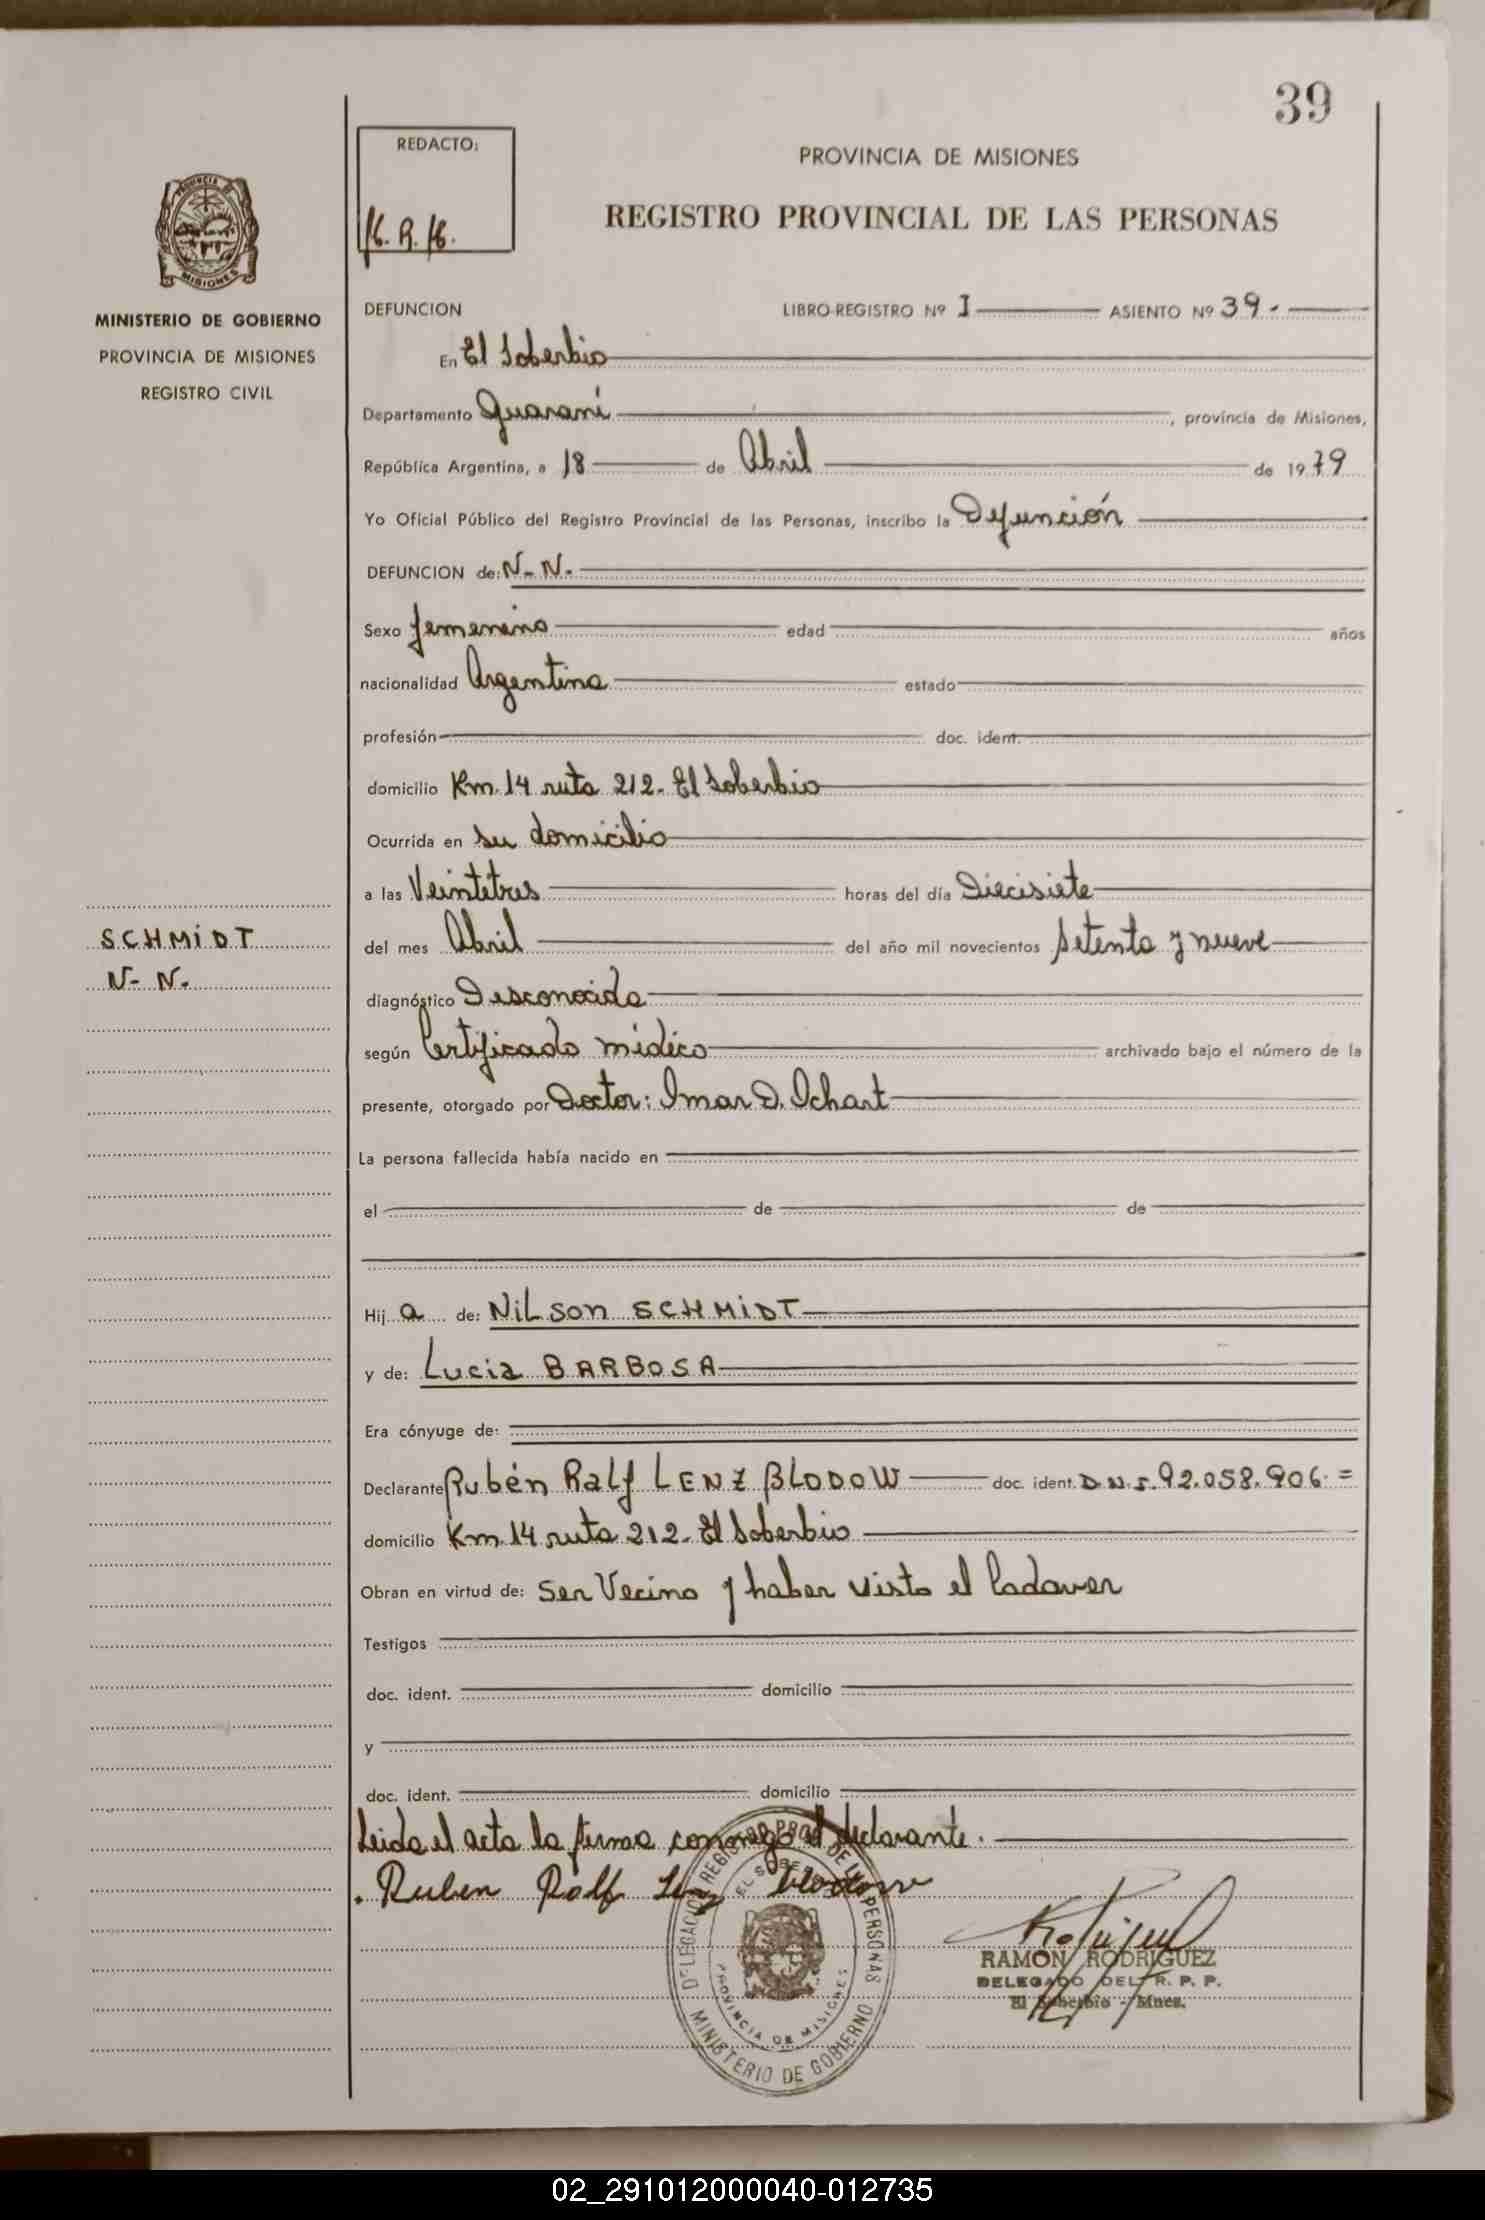 39
REDACTO:
PROVINCIA DE MISIONES
REGISTRO PROVINCIAL DE LAS PERSONAS
MISIONES
MINISTERIO DE GOBIERNO
PROVINCIA DE MISIONES
REGISTRO CIVIL
SCHMIDT
N- N.
DEFUNCION LIBRO-REGISTRO Nº I ASIENTO Nº 39-
En El Soberbio
Departamento Guaraní, provincia de Misiones,
República Argentina, a 18 de Abril de 1979
Yo Oficial Público del Registro Provincial de las Personas, inscribo la Defunción
DEFUNCION de: N- N.
Sexo femenino edad años
nacionalidad Argentina estado
profesión doc. ident.
domicilio Km. 14 ruta 212- El Soberbio
Ocurrida en su domicilio
a las Veintetres horas del día Diecisiete
del mes Abril del año mil novecientos setenta y nueve
diagnóstico Desconocido
según Certificado médico archivado bajo el número de la
presente, otorgado por Doctor: Imar D. Ochart
La persona fallecida había nacido en
el de de
Hij a de: NiLson SCHMiDT
y de: Lucia BARBOSA
Era cónyuge de:
Declarante Rubén Ralf LENZ BLODOW doc. ident. D.N.I. 92.058.906.=
domicilio Km. 14 ruta 212- El Soberbio
Obran en virtud de: Ser Vecino y haber visto el Cadaver
Testigos
doc. ident. domicilio
y
doc. ident. domicilio
Leida el acta la firma conmigo el declarante.
Ruben Ralf Lenz Blodow
DELEGACION REGISTRO PROV. DE LAS PERSONAS
EL SOBERBIO
PROVINCIA DE MISIONES
MINISTERIO DE GOBIERNO
RAMON RODRIGUEZ
DELEGADO DEL R. P. P.
El Soberbio - Mnes.
02_291012000040-012735